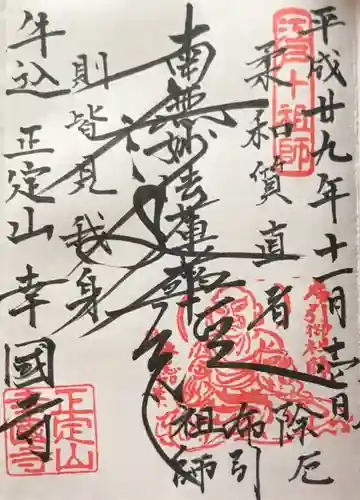 平成廿九年十一月十二日
江戸十祖師
柔和質直者
除厄
布引
祖師
南無妙法蓮華経
則皆見我身
牛込 正定山 幸國寺
正定山
幸國寺